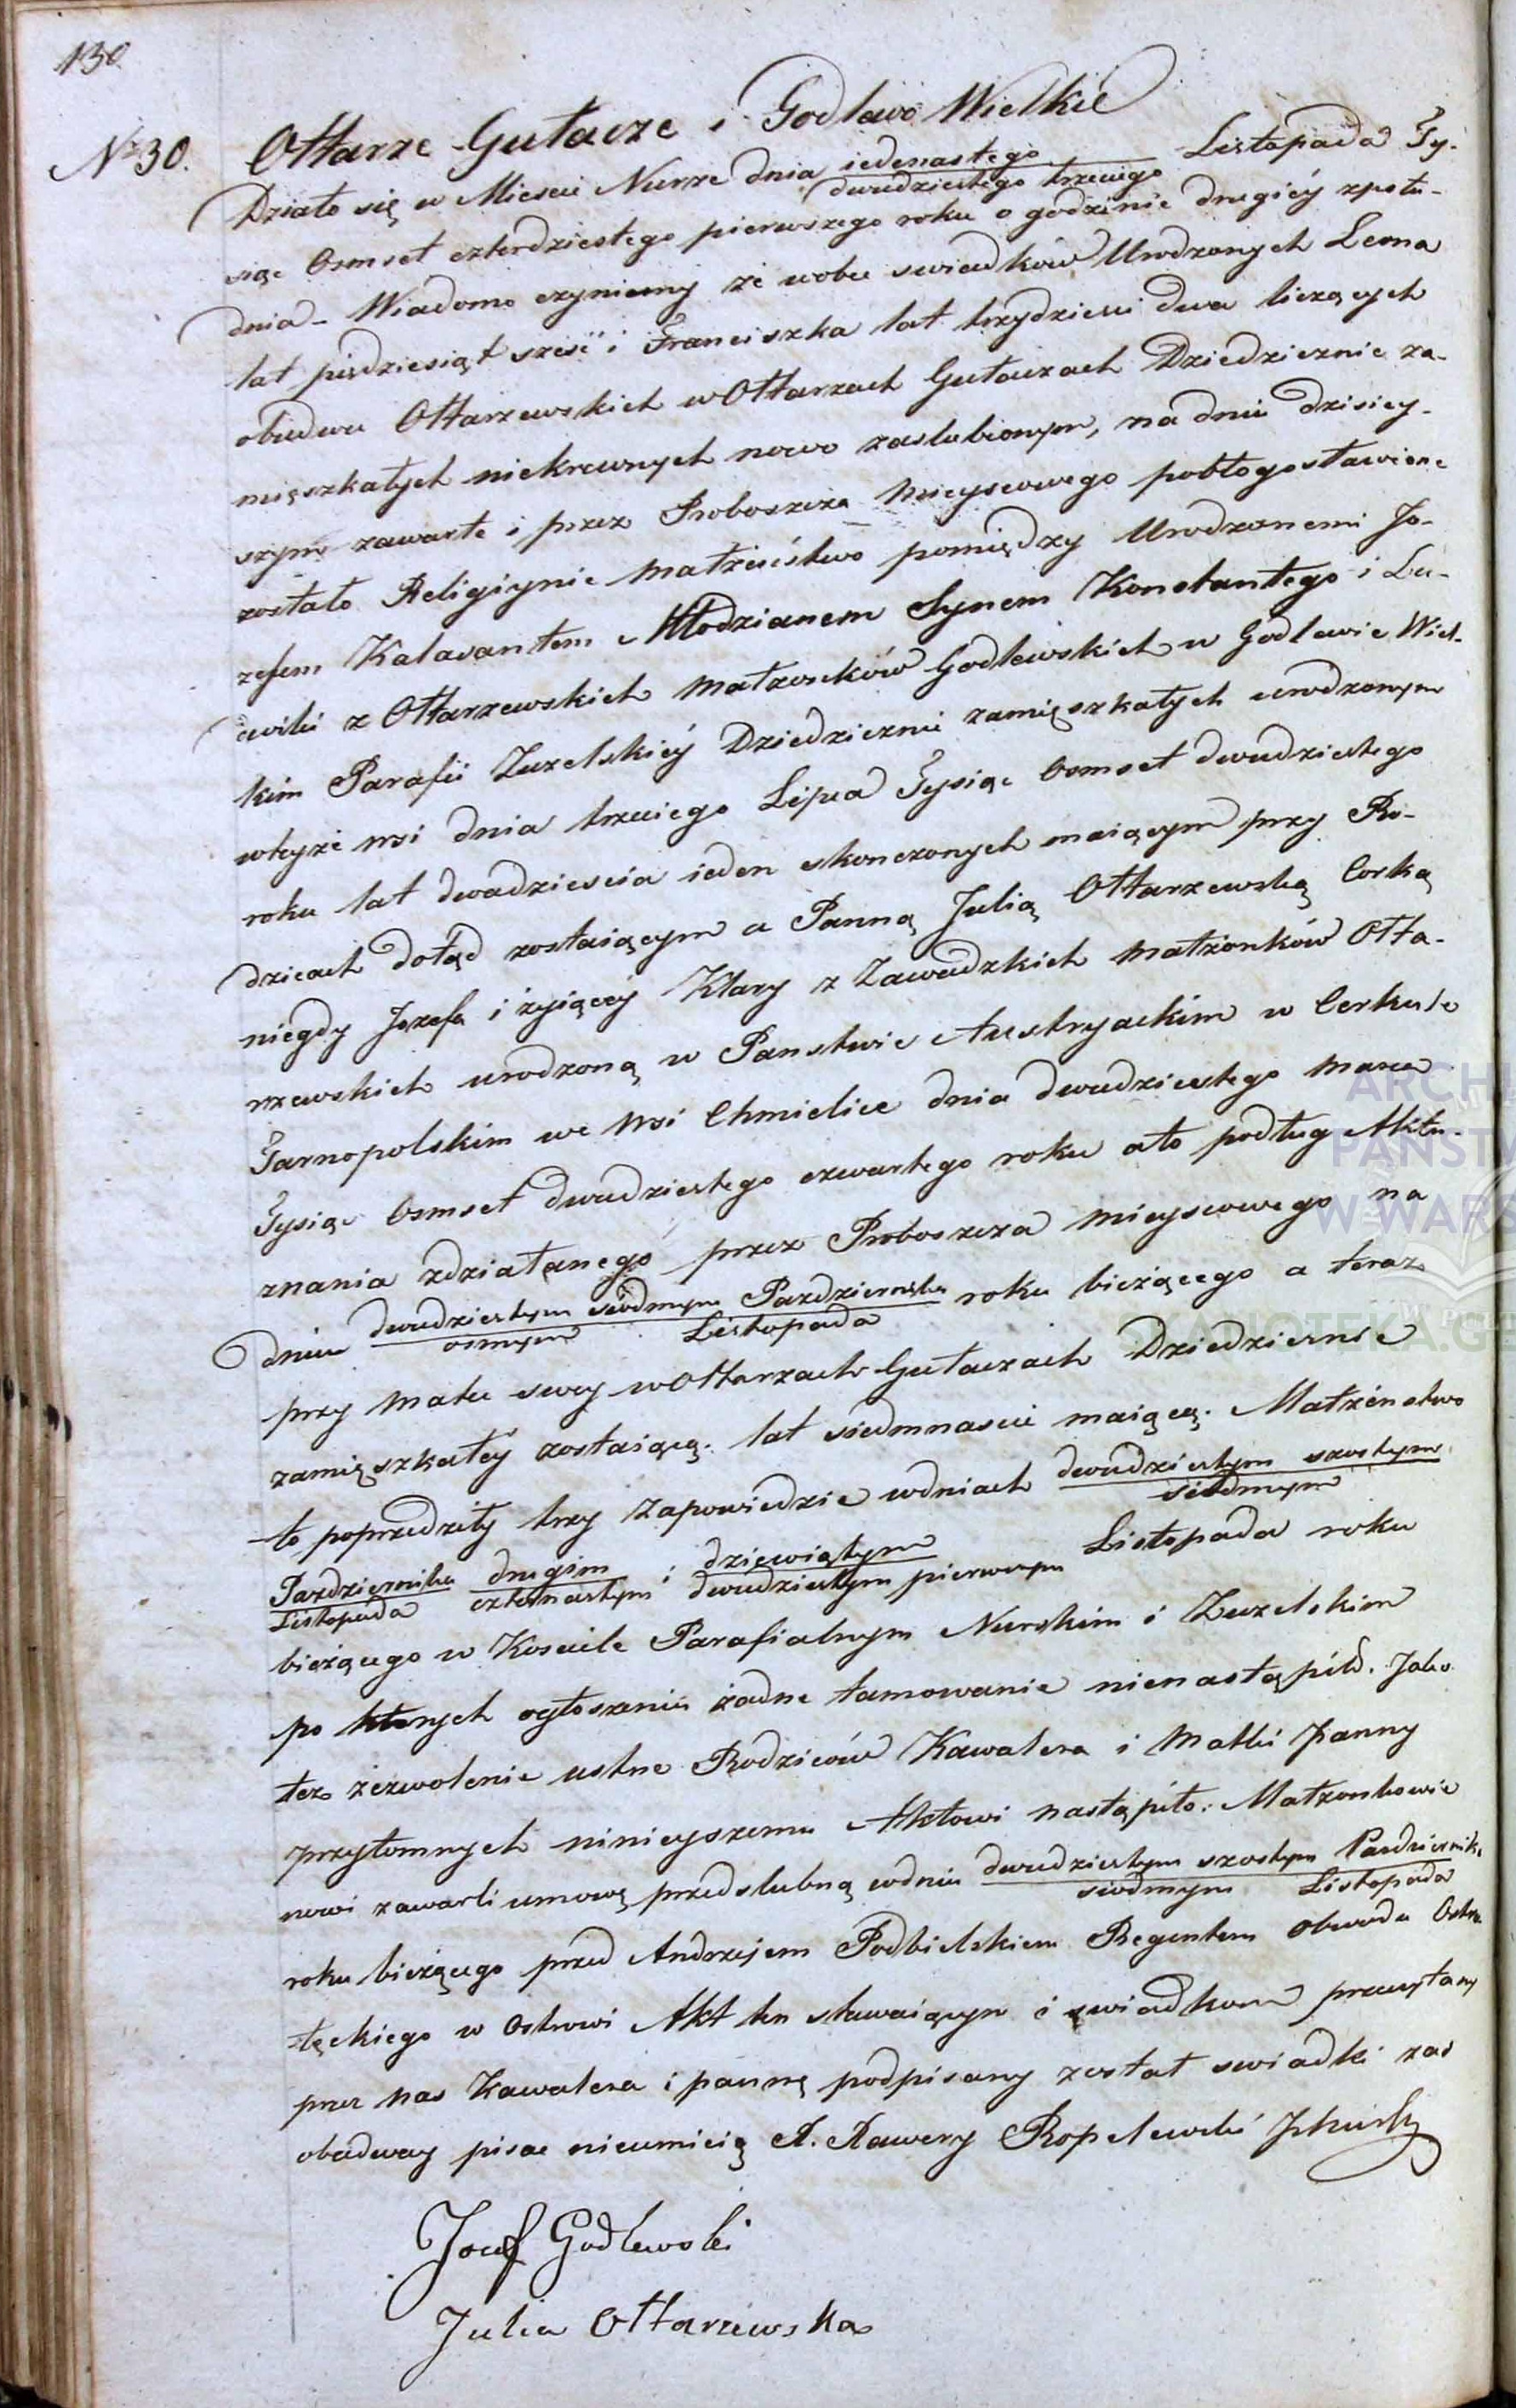 130
№ 30. Ołtarze Gułacze i Godlewo Wielkie
Działo się w Mieście Nurze dnia iedenastego / dwudziestego trzeciego Listopada Ty-
siąc Osmset czterdziestego pierwszego roku o godzinie drugiéy zpołu-
dnia – Wiadomo czyniemy że wobec swiadków Urodzonych Leona
lat pięćdziesiąt sześć i Franciszka lat trzydzieści dwa liczących
obudwu Ołtarzewskich w Ołtarzach Gułaczach Dziedzicznie za-
mięszkałych niekrewnych nowo zaslubionym, na dniu dzisiey-
szym zawarte i przez Proboszcza Mieyscowego pobłogosławione
zostało Religiynie Małżeństwo pomiędzy Urodzonemi Jo-
zefem Kalasantem Młodzianem Synem Konstantego i Lu-
dwiki z Ołtarzewskich Małżonków Godlewskich w Godlewie Wiel-
kim Parafii Zuzelskiéy Dziedzicznie zamięszkałych urodzonym
wteyże wsi dnia trzeciego Lipca Tysiąc Osmset dwudziestego
roku lat dwadziescia ieden skonczonych maiącym przy Ro-
dzicach dotąd zostaiącym a Panną Julią Ołtarzewską Corką
niegdy Jozefa i żyiącéy Klary z Zawadzkich Małżonków Ołta-
rzewskich urodzoną w Panstwie Austryackim w Cerkule
Tarnopolskim we Wsi Chmielice dnia dwudziestego Marca
Tysiąc Osmset dwudziestego czwartego roku ato podług Aktu-
znania zdziałanego przez Proboszcza Mieyscowego na
dniu dwudziestym siódmym Pazdziernika / osmym Listopada roku bieżącego a teraz
przy Matce swey w Ołtarzach Gułaczach Dziedzicznie
zamięszkałéy zostaiącą. lat siedmnascie maiącą. Małżenstwo
to poprzedziły trzy Zapowiedzie wdniach dwudziestym szostym / siódmym
Pazdziernika / Listopada drugim / czternastym i dziewiątym / dwudziestym pierwszym Listopada roku
bieżącego w Kosciele Parafialnym Nurskim i Zuzelskim
po których ogłoszeniu żadne tamowanie nienastąpiło. Jako
też zezwolenie ustne Rodziców Kawalera i Matki Panny
przytomnych ninieyszemu Aktowi nastąpiło. Małżonkowie
nowi zawarli umowę przedslubną wdniu dwudziestym szostym Pazdziernika / siodmym Listopada
roku bieżącego przed Andrzejem Podbielskiem Regentem Obwodu Ostro-
łęckiego w Ostrowi Akt ten stawaiącym i swiadkom przeczytany
przez Nas Kawalera i pannę podpisany został swiadki zas
obudway pisac nieumieią X. Xawery Ropelewski
Jozef Godlewski
Julia Ołtarzewska